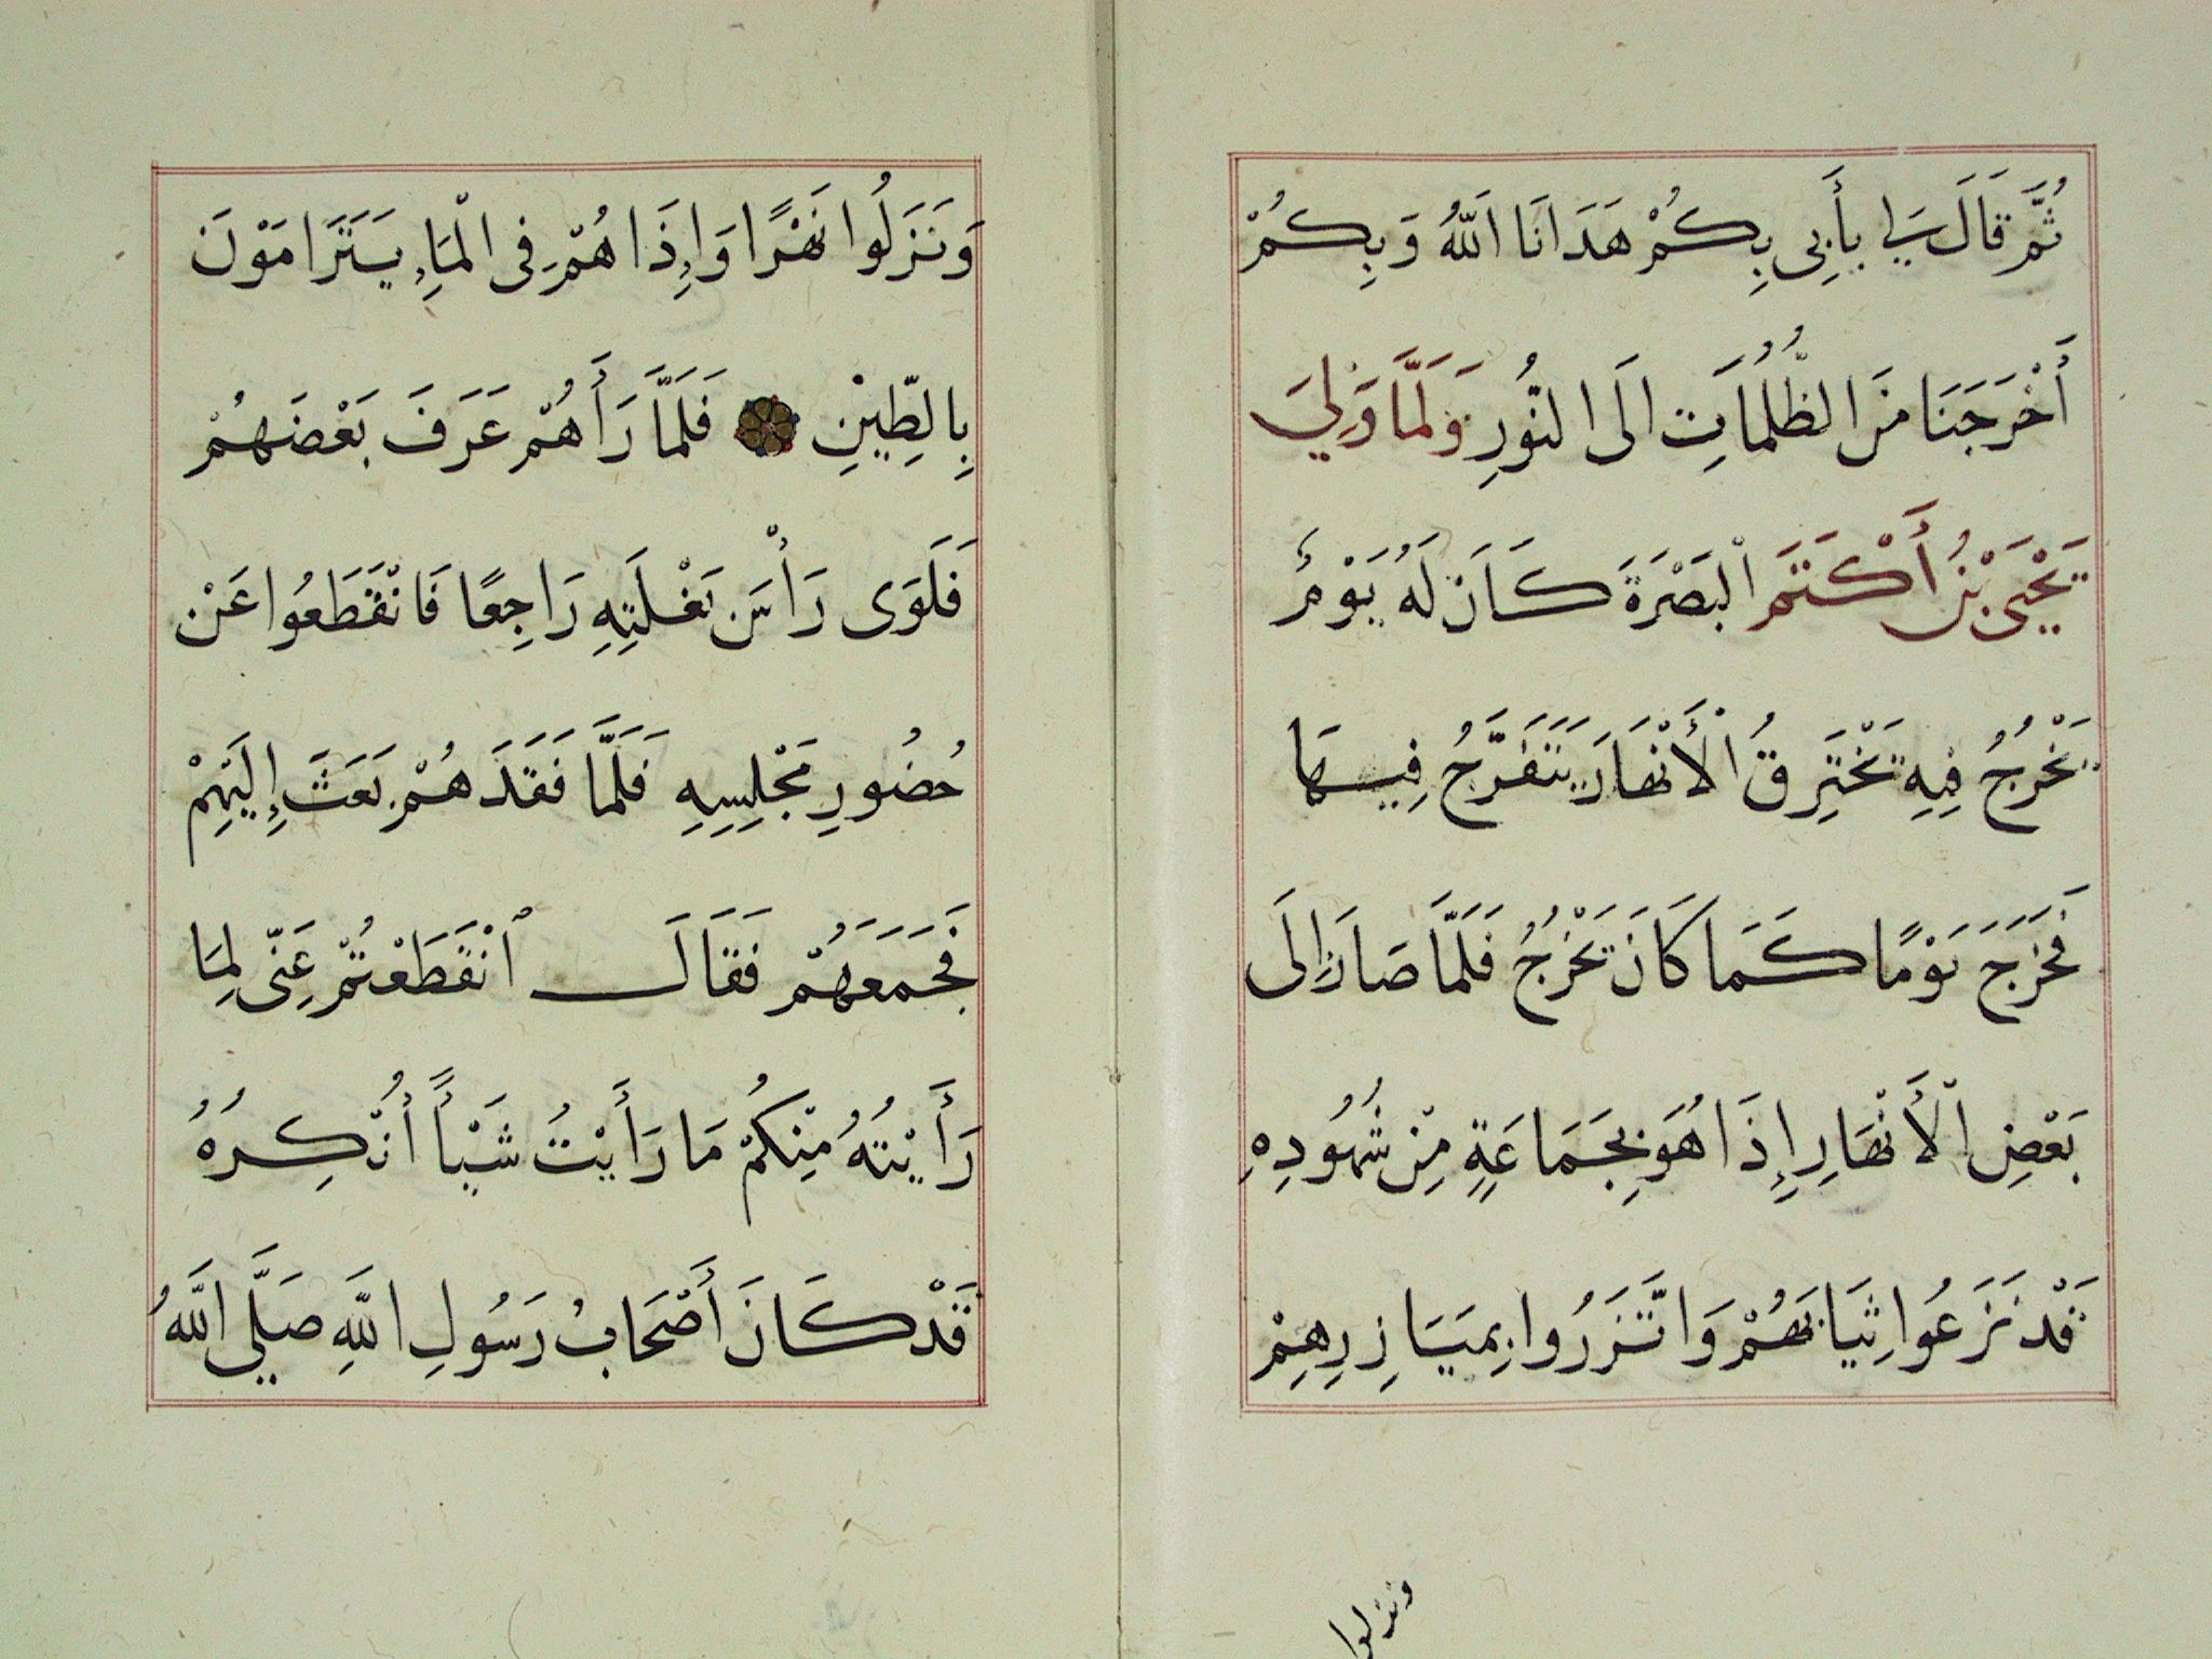 ثُمَّ قَالَ لِي بِأَبِي بِكُمْ هَدَانَا اَللّٰهُ وَبِكُمْ
أَخْرَجَنَا مِنَ الظُّلُمَاتِ اِلَى النُّورِ وَلَمَّا وَلِيَ
يَحْيَى بْنُ أَكْتَمَ الْبَصْرَةَ كَانَ لَهُ يَوْمٌ
يَخْرُجُ فِيهِ يَخْتَرِقُ الْأَنْهَارَ يَتَفَرَّجُ فِيهَا
فَخَرَجَ يَوْمًا كَمَا كَانَ يَخْرُجُ فَلَمَّا صَارَ إِلَى
بَعْضِ الْأَنْهَارِ إِذَا هُوَ بِجَمَاعَةٍ مِنْ شُهُودِهِ
قَدْ نَزَعُوا ثِيَابَهُمْ وَاتَّزَرُوا بِمَيَازِرِهِمْ
ونزلوا
وَنَزَلُوا نَهْرًا وَإِذَا هُمْ فِي الْمَاءِ يَتَرَامَوْنَ
بِالطِّيْنِ فَلَمَّا رَأَهُمْ عَرَفَ بَعْضَهُمْ
فَلَوَى رَأْسَ بَغْلَتِهِ رَاجِعًا فَانْقَطَعُوا عَنْ
حُضُورِ مَجْلِسِهِ فَلَمَّا فَقَدَهُمْ بَعَثَ إِلَيْهِمْ
فَجَمَعَهُمْ فَقَالَ اَنْقَطَعْتُمْ عَنِّى لِمَا
رَأَيْتُهُ مِنْكُمْ مَا رَأَيْتُ شَيْأً أُنْكِرُهُ
قَدْ كَانَ أَصْحَابُ رَسُولِ اللّٰهِ صَلَّي اللّٰهُ